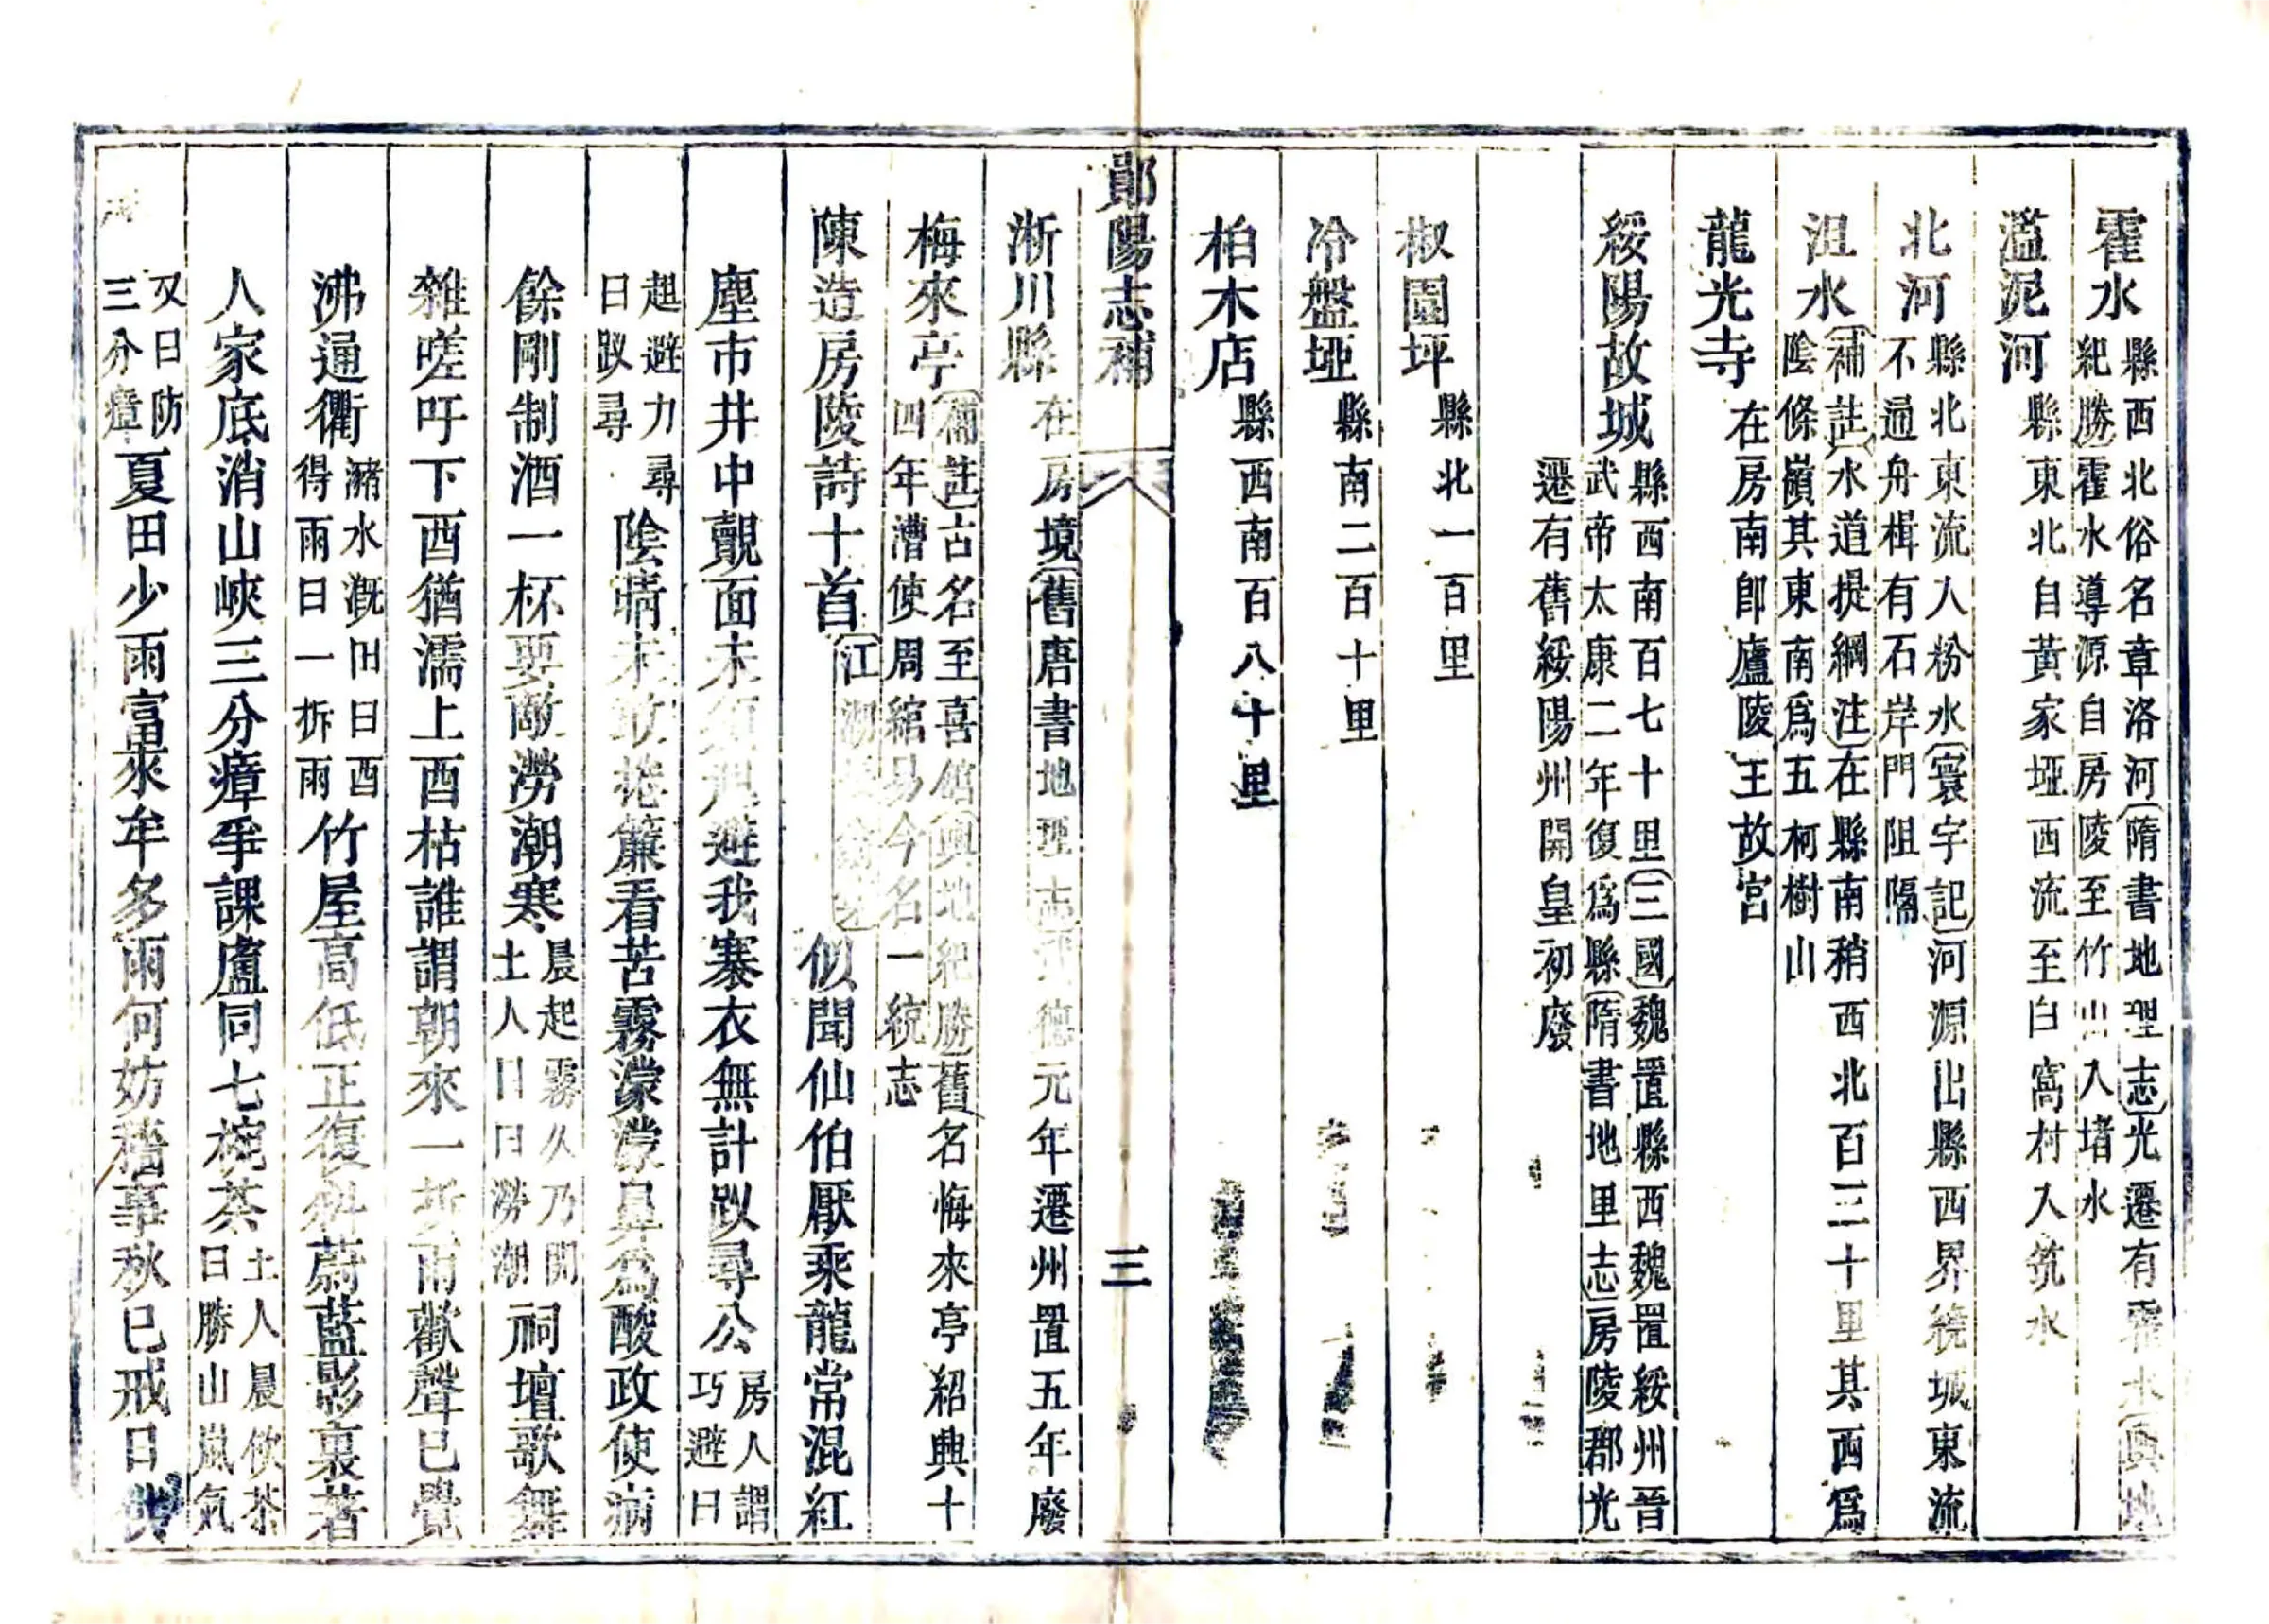 霍水縣西北俗名章洛河隋書地理志光遷有霍水輿地
紀勝霍水導源自房陵至竹山入堵水
濫泥河縣東北自黃家埡西流至白窩村入筑水
北河縣北東流入粉水寰宇記河源出縣西界繞城東流
不通舟楫有石岸門阻隔
沮水補註水道提綱注在縣南稍西北百三十里其西爲
陰條嶺其東南爲五柯樹山
龍光寺在房南卽廬陵王故宮
綏陽故城縣西南百七十里三國魏置縣西魏置綏州晉
武帝太康二年復爲縣隋書地里志房陵郡光
遷有舊綏陽州開皇初廢
椒園坪縣北一百里
冷盤埡縣南二百十里
柏木店縣西南百八十里
鄖陽志補 三
淅川縣在房境舊唐書地理志武德元年遷州置五年廢
梅來亭補註古名至喜館輿地紀勝舊名悔來亭紹興十
四年漕使周綰易今名一統志
陳造房陵詩十首江湖長翁集 似聞仙伯厭乘龍常混紅
塵市井中覿面未須趄避我褰衣無計趿尋公房人謂
巧避曰
趄避力尋
曰趿尋
陰晴未敢捲簾看苦霧濛濛鼻爲酸政使病
餘剛制酒一杯要敵澇潮寒晨起霧久乃開
土人曰曰澇潮
祠壇歌舞
雜嗟吁下酉猶濡上酉枯誰謂朝來一拆雨歡聲已覺
沸通衢瀦水溉田曰酉
得雨曰一拆雨
竹屋高低正復斜蔚藍影裏著
人家底消山峽三分瘴爭課盧同七椀茶土人晨飲茶
曰勝山嵐氣
又曰防
三分瘴
夏田少雨富來牟多雨何妨穡事秋巳戒日供